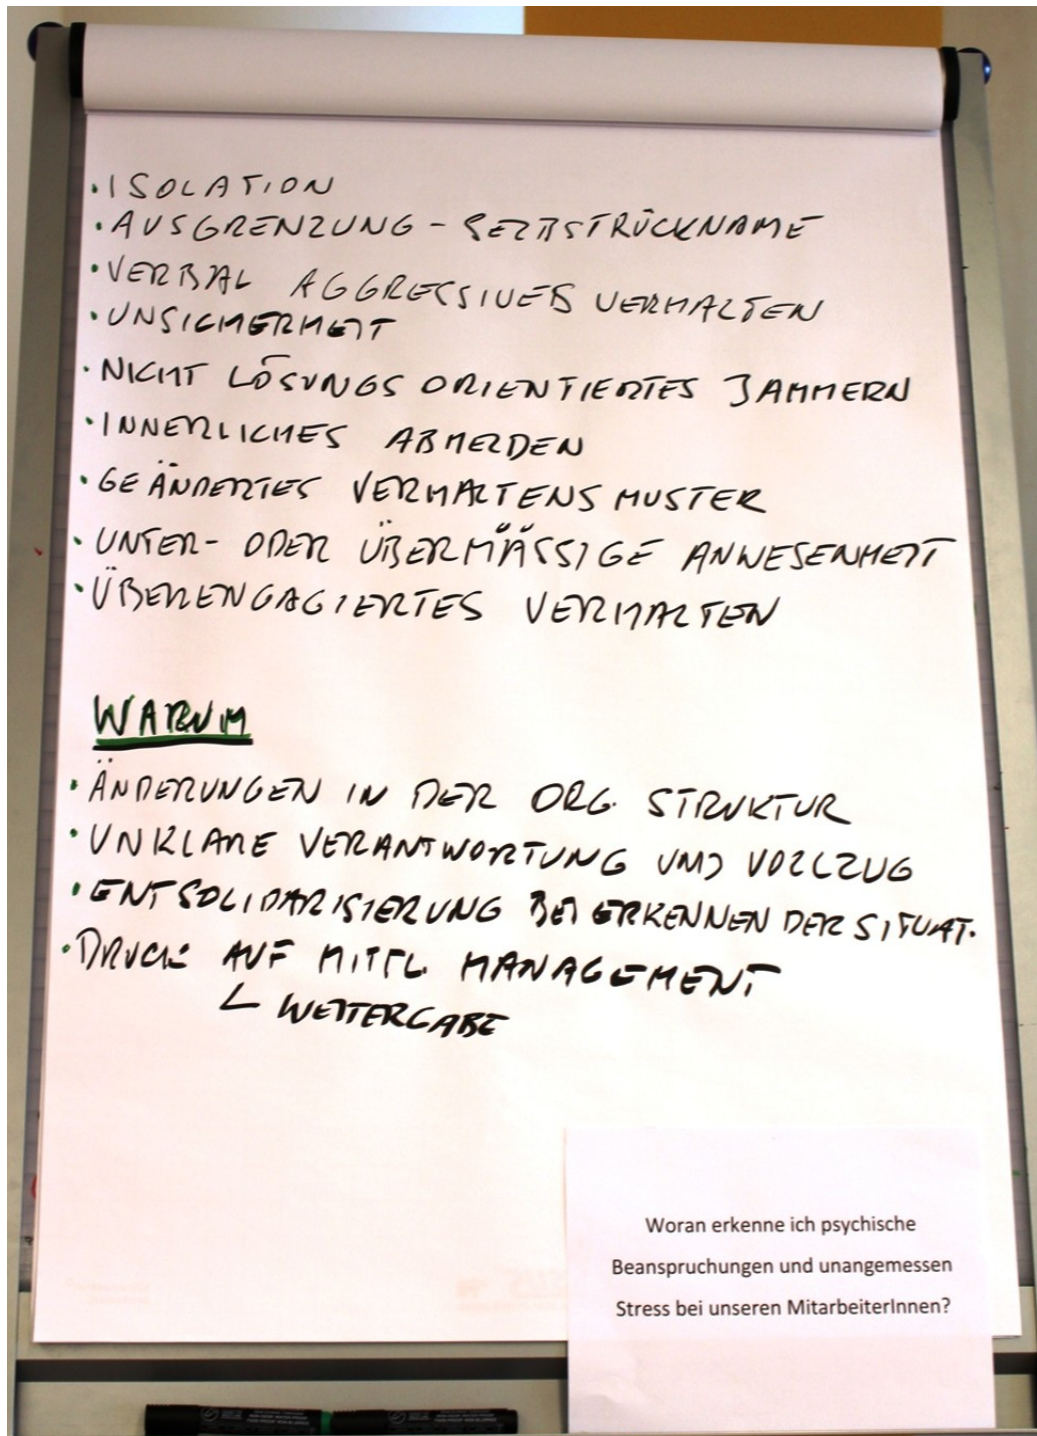 • ISOLATION
• AUSGRENZUNG - SELBSTRÜCKNAME
• VERBAL AGGRESSIVES VERHALTEN
• UNSICHERHEIT
• NICHT LÖSUNGS ORIENTIERTES JAMMERN
• INNERLICHES ABMELDEN
• GEÄNDERTES VERHALTENS MUSTER
• UNTER- ODER ÜBERMÄSSIGE ANWESENHEIT
• ÜBERENGAGIERTES VERHALTEN
WARUM
• ÄNDERUNGEN IN DER ORG. STRUKTUR
• UNKLARE VERANTWORTUNG UND VOLLZUG
• ENTSOLIDARISIERUNG BEI ERKENNEN DER SITUAT.
• DRUCK AUF MITTL. MANAGEMENT
∟ WEITERGABE
Woran erkenne ich psychische
Beanspruchungen und unangemessen
Stress bei unseren MitarbeiterInnen?